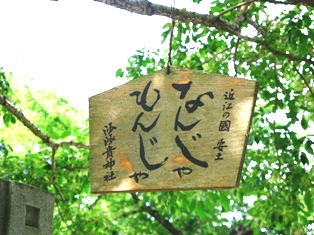 近江の國 安土
なんじゃ
もんじゃ
沙沙貴神社